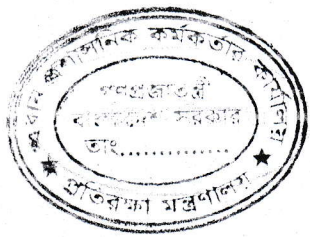 প্রধান প্রশাসনিক কর্মকর্তার কার্যালয়
গণপ্রজাতন্ত্রী
বাংলাদেশ সরকার
তাং..............
★ প্রতিরক্ষা মন্ত্রণালয় ★